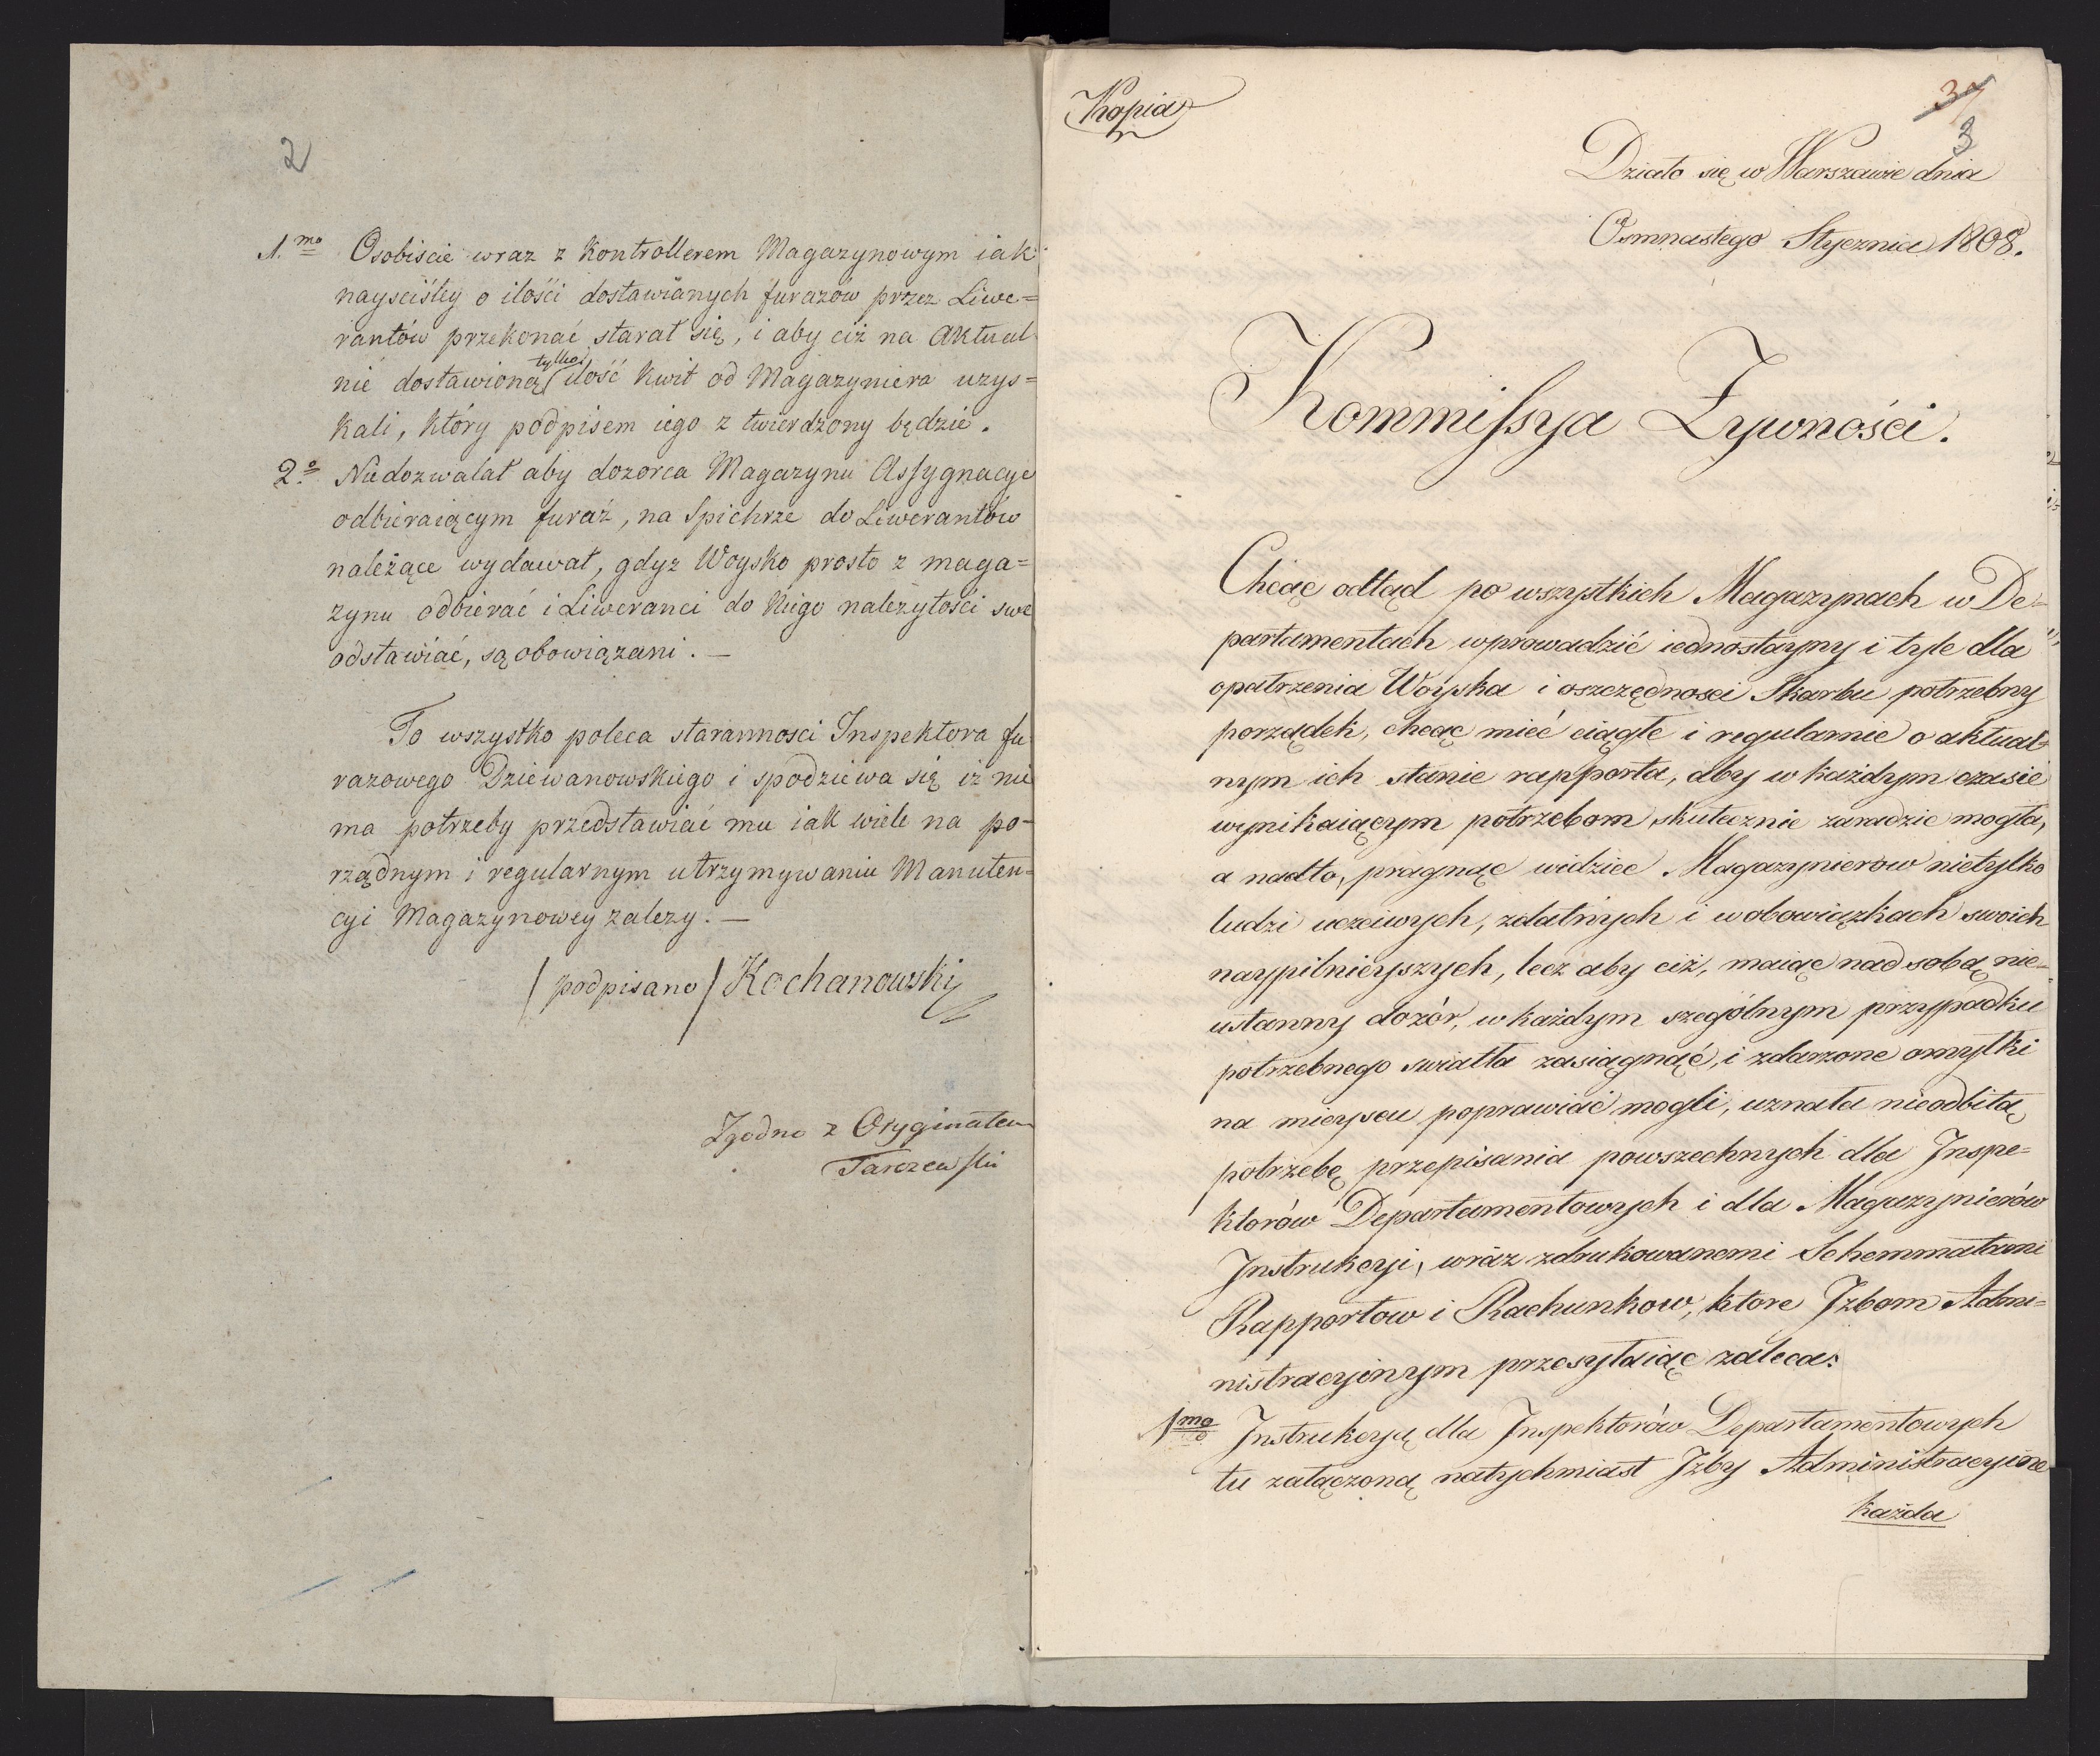 2
1.mo Osobiscie wraz z Kontrollerem Magazynowym iak
nayscisley o ilości dostawianych furazów przez Liwe=
rantów przekonać starał się, i aby ciż na Aktual
nie dostawioną tylko ilość Kwit od Magazyniera uzys=
kali, który podpisem iego z twierdzony będzie.
2.o Niedozwalał aby dozorca Magazynu Assygnacye
odbieraiącym furaż, na Spichrze do Liwerantów
należące wydawał, gdyz Woysko prosto z maga=
zynu odbierać i Liweranci do Niego nalezytości swe
odstawiać, są obowiązani. —
To wszystko poleca starannosci Inspektora fu
razowego Dziewanowskiego i spodziewa się iz nie
ma potrzeby przedstawiać mu iak wiele na po-
rządnym i regularnym utrzymywaniu Manuten=
cyi Magazynowey zalezy. —
/podpisano/ Kochanowski
Zgodno z Oryginałem
Tarczewski
Kopia
37
3
Działo się w Warszawie dnia
Osmnastego Stycznia 1808.
Kommissya Żywności.
Chcąc odtąd po wszystkich Magazynach w De=
partamentach wprowadzić iednostayny i tyle dla
opatrzenia Woyska i oszczędnosci Skarbu potrzebny
porządek, chcąc mieć ciągłe i regularnie o aktual=
nym ich stanie rapporta, aby w każdym czasie
wynikaiącym potrzebom skutecznie zaradzic mogła,
a nadto, pragnąc widziec Magazynierow nietylko
ludzi uczciwych, zdatnych i w obowiązkach swoich
naypilnieyszych, lecz aby ciż, maiąc nad sobą nie=
ustanny dozór, w każdym szególnym przypadku
potrzebnego swiatła zasiągnąć, i zdarzone omyłki
na mieyscu poprawiać mogli, uznała nieodbitą
potrzebę przepisania powszechnych dla Inspe=
ktorów Departamentowych i dla Magazynierów
Instrukcyi, wraz zdrukowanemi Schemmatami
Rapportow i Rachunkow, ktore Izbom Admi=
nistracyinym przesyłaiąc zaleca:
1mo Instrukcyą dla Inspektorów Departamentowych
tu załączoną natychmiast Izby Administracyine
każda